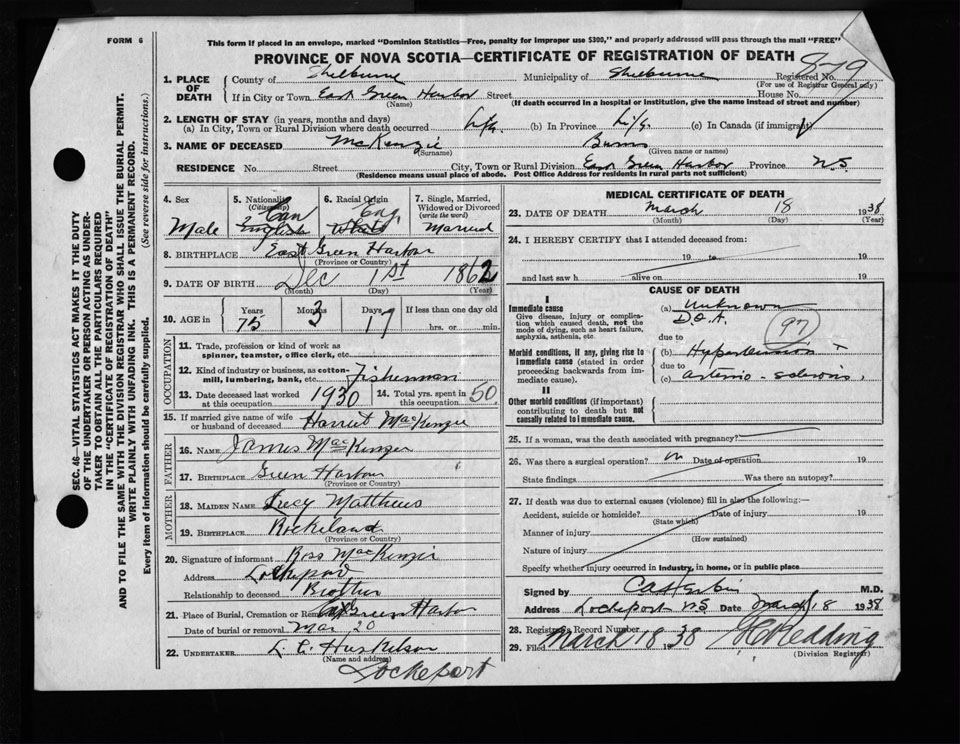 FORM 6
This form if placed in an envelope, marked "Dominion Statistics—Free, penalty for improper use $300," and properly addressed will pass through the mail "FREE"
PROVINCE OF NOVA SCOTIA—CERTIFICATE OF REGISTRATION OF DEATH
1. PLACE OF DEATH County of Shelburne Municipality of Shelburne Registered No. 879
(For use of Registrar General only)
If in City or Town East Green Harbor Street House No.
(Name) (If death occurred in a hospital or institution, give the name instead of street and number)
2. LENGTH OF STAY (in years, months and days)
(a) In City, Town or Rural Division where death occurred Life (b) In Province Life (c) In Canada (if immigrant)
3. NAME OF DECEASED McKenzie
(Surname) (Given name or names)
RESIDENCE No. Street City, Town or Rural Division East Green Harbor Province N.S
(Residence means usual place of abode. Post Office Address for residents in rural parts not sufficient)
4. Sex 5. Nationality (Citizenship) 6. Racial Origin 7. Single, Married, Widowed or Divorced (write the word)
Male Can English Eng White Married
8. BIRTHPLACE East Green Harbor
(Province or Country)
9. DATE OF BIRTH Dec 1st 1862
(Month) (Day) (Year)
10. AGE in Years Months Days If less than one day old
75 3 17 hrs. or min.
OCCUPATION
11. Trade, profession or kind of work as spinner, teamster, office clerk, etc.
12. Kind of industry or business, as cotton-mill, lumbering, bank, etc. Fisherman
13. Date deceased last worked at this occupation 1930 14. Total yrs. spent in this occupation 50
15. If married give name of wife or husband of deceased Harriet MacKenzie
FATHER
16. NAME James MacKenzie
17. BIRTHPLACE Green Harbor
(Province or Country)
MOTHER
18. MAIDEN NAME Lucy Matthews
19. BIRTHPLACE Rockeland
(Province or Country)
20. Signature of informant Ross MacKenzie
Address Lockeport
Relationship to deceased Brother
21. Place of Burial, Cremation or Removal East Green Harbor
Date of burial or removal Mar 20
22. UNDERTAKER L. C. Huskilson
(Name and address)
Lockeport
MEDICAL CERTIFICATE OF DEATH
23. DATE OF DEATH March 18 1938
(Month) (Day) (Year)
24. I HEREBY CERTIFY that I attended deceased from:
19 to 19
and last saw h alive on 19
CAUSE OF DEATH
I
Immediate cause (a) Unknown
Give disease, injury or complication which caused death, not the mode of dying, such as heart failure, asphyxia, asthenia, etc.
D.O.A.
due to 97
Morbid conditions, if any, giving rise to immediate cause (stated in order proceeding backwards from immediate cause).
(b) Hypertension +
due to
(c) arterio-sclerosis
II
Other morbid conditions (if important) contributing to death but not causally related to immediate cause.
25. If a woman, was the death associated with pregnancy?
26. Was there a surgical operation? no Date of operation 19
State findings Was there an autopsy?
27. If death was due to external causes (violence) fill in also the following:—
Accident, suicide or homicide? Date of injury 19
(State which)
Manner of injury
(How sustained)
Nature of injury
Specify whether injury occurred in industry, in home, or in public place
Signed by M.D.
Address Lockeport N.S Date March 18 1938
28. Registrar's Record Number
29. Filed March 18 1938 Redding
(Division Registrar)
SEC. 46—VITAL STATISTICS ACT MAKES IT THE DUTY
OF THE UNDERTAKER OR PERSON ACTING AS UNDERTAKER TO OBTAIN ALL THE PARTICULARS REQUIRED
IN THE "CERTIFICATE OF REGISTRATION OF DEATH"
AND TO FILE THE SAME WITH THE DIVISION REGISTRAR WHO SHALL ISSUE THE BURIAL PERMIT.
WRITE PLAINLY WITH UNFADING INK. THIS IS A PERMANENT RECORD.
Every item of information should be carefully supplied. (See reverse side for instructions.)